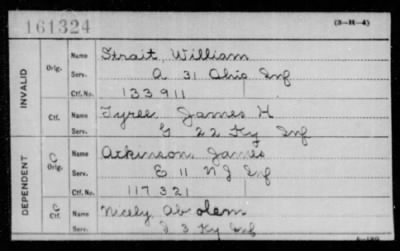 161324
(3-H-4)
INVALID
Orig.
Name Strait, William
Serv. A 31 Ohio Inf
Ctf. No. 133911
Ctf.
Name Tyree James H
Serv. G 22 Ky Inf
DEPENDENT
C Orig.
Name Atkinson, James
Serv. E 11 NJ Inf
Ctf. No. 117321
C Ctf.
Name Nicely Absolem
Serv. 3 Ky Inf